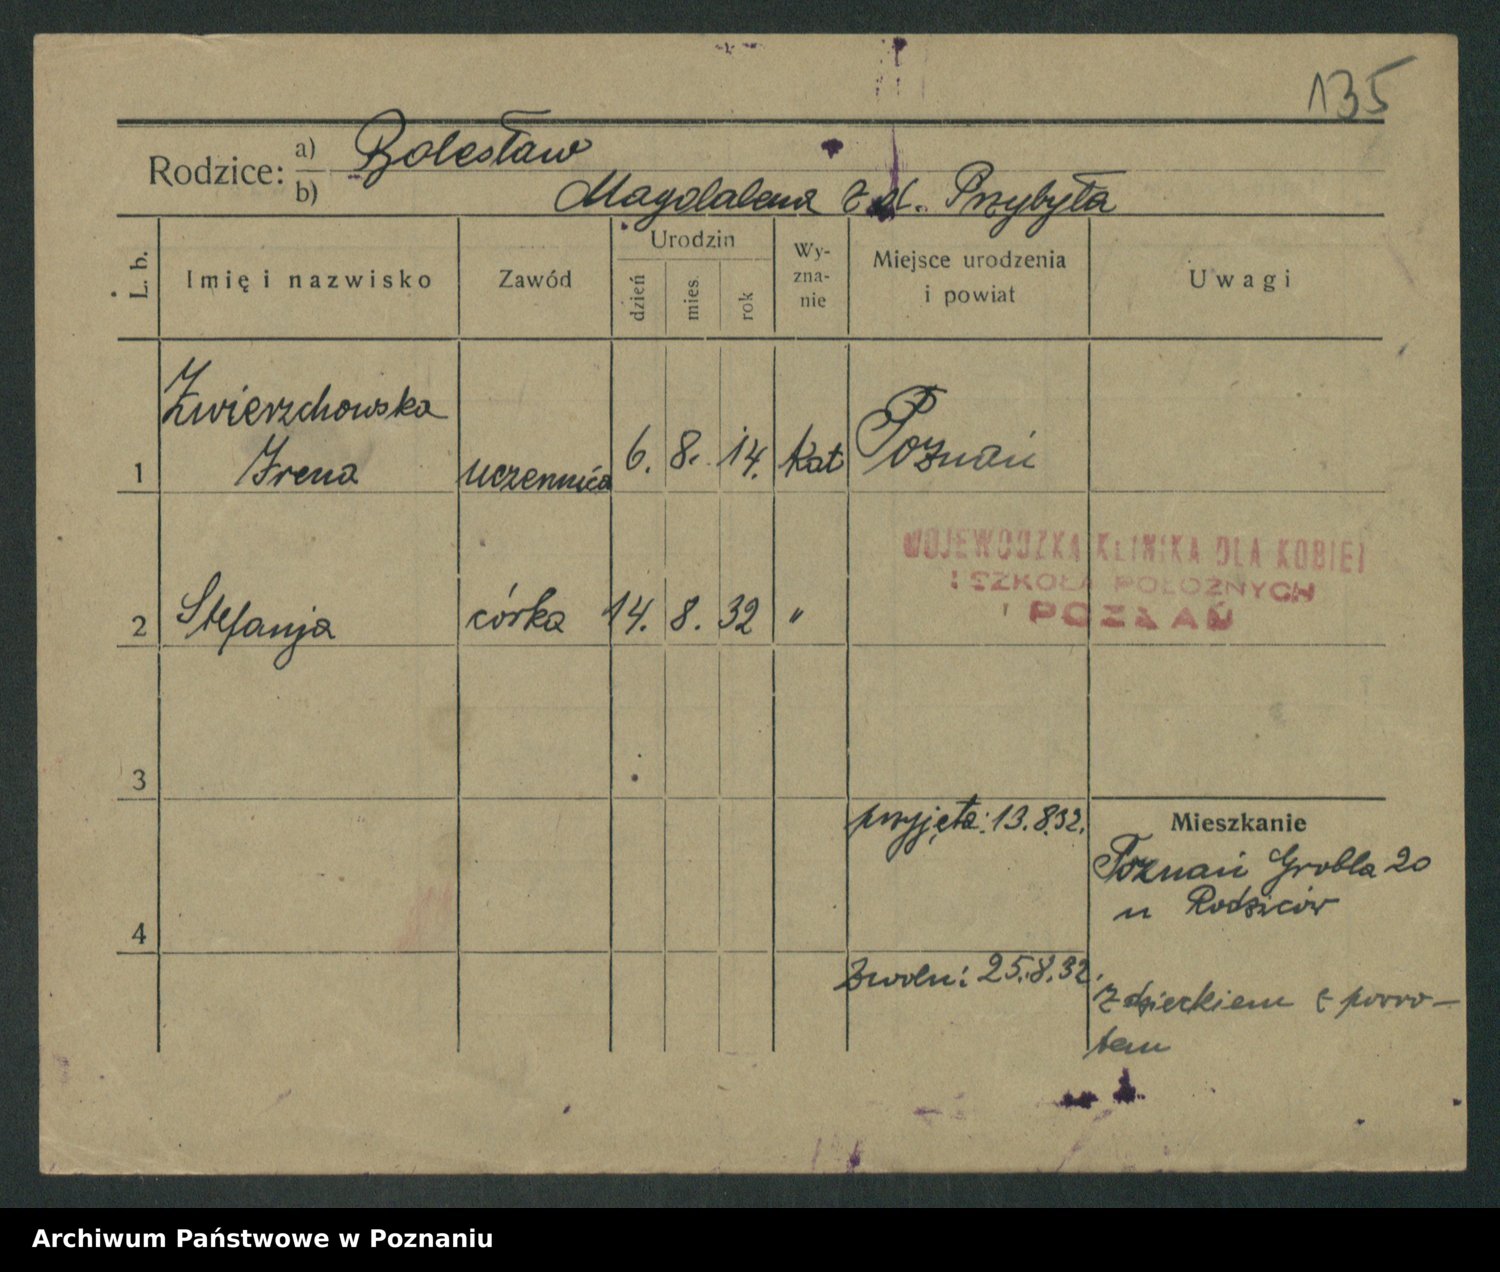 135
Rodzice: a) Bolesław
b) Magdalena z d. Przybyła
L. b.
Imię i nazwisko
Zawód
Urodzin
dzień
mies.
rok
Wy-
zna-
nie
Miejsce urodzenia
i powiat
Uwagi
Zwierzchowska
1 Irena uczennica 6. 8. 14. kat Poznań
WOJEWÓDZKA KLINIKA DLA KOBIET
I SZKOŁA POŁOŻNYCH
POZNAŃ
2 Stefanja córka 14. 8. 32 "
3
przyjęta: 13.8.32.
Mieszkanie
Poznań Grobla 20
u Rodziców
4
zwoln: 25.8.32.
z dzieckiem z powro-
tem
Archiwum Państwowe w Poznaniu